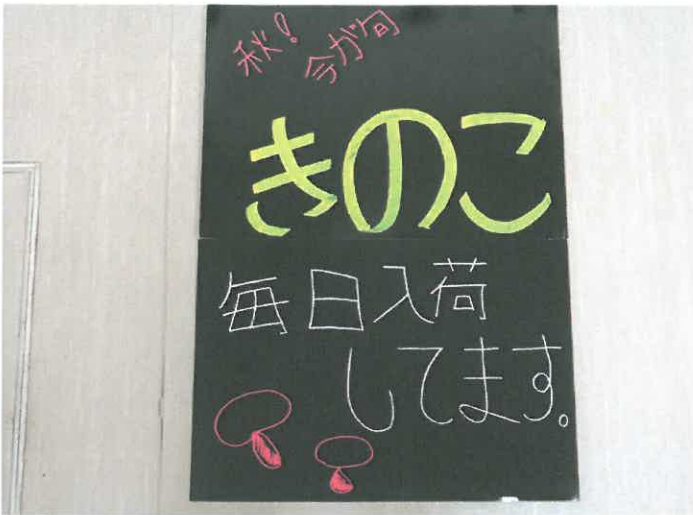 秋!
今が旬
きのこ
毎日入荷
してます。